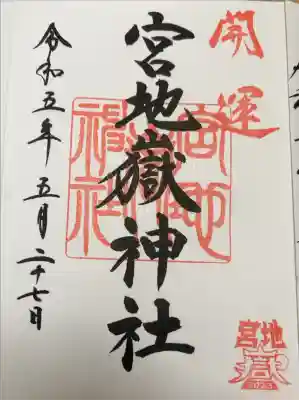 開運
宮地嶽神社
令和五年 五月二十七日
宮地
嶽
2023